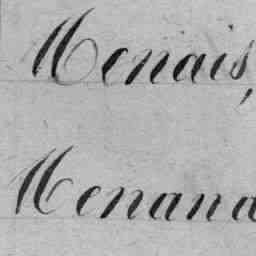 Menais,
Menana